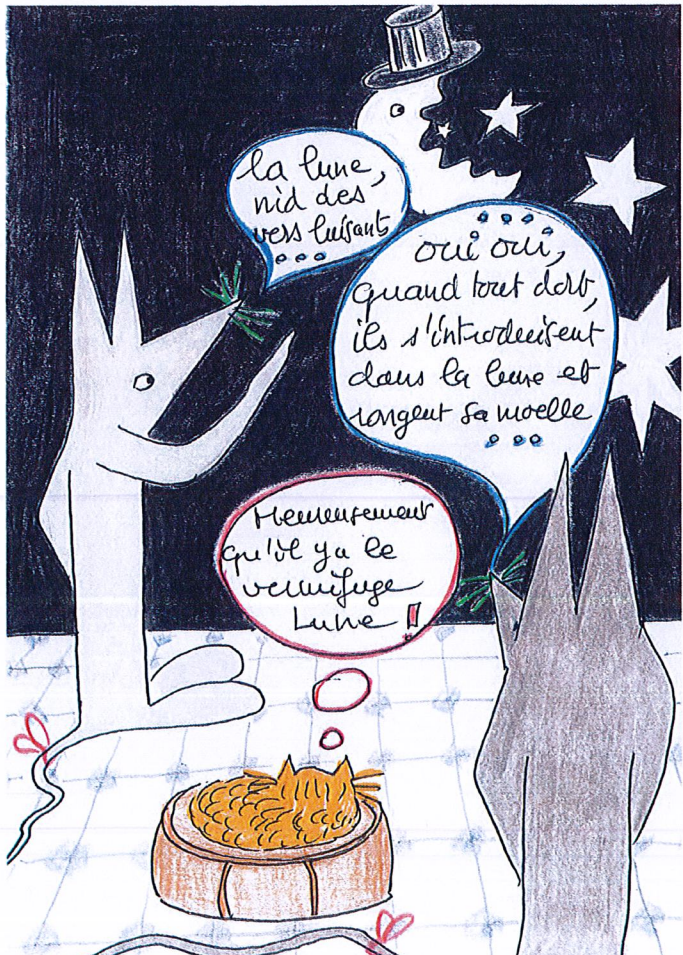 la lune,
nid des
vers luisants
...
... .
oui oui,
quand tout dort,
ils s'introduisent
dans la lune et
rongent sa moelle
...
Heureusement
qu'il y a le
vermifuge
Lune !